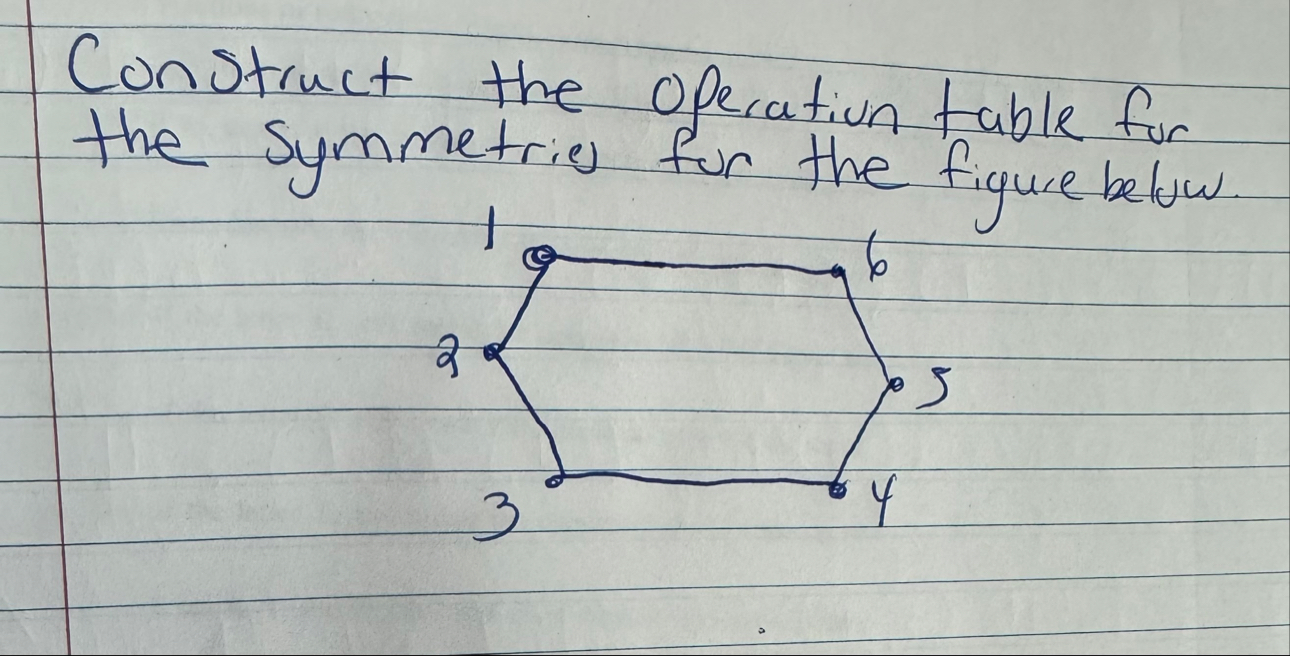 Construct the operation table for
the symmetries for the figure below.
1
6
2
5
3
4